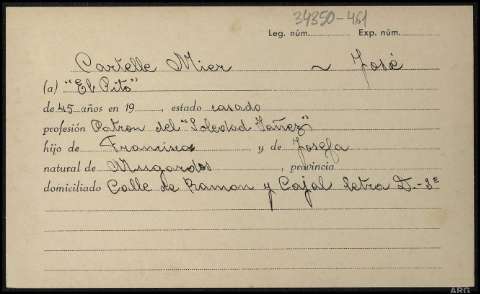 34350-461
Leg. núm. Exp. núm.
Cartelle Mier ~ José
(a) "El Pito"
de 45 años en 19 , estado casado
profesión Patron del "Soledad Yañez"
hijo de Francisco y de Josefa
natural de Mugardos , provincia
domiciliado Calle de Ramon y Cajal letra D.-3º
ARG